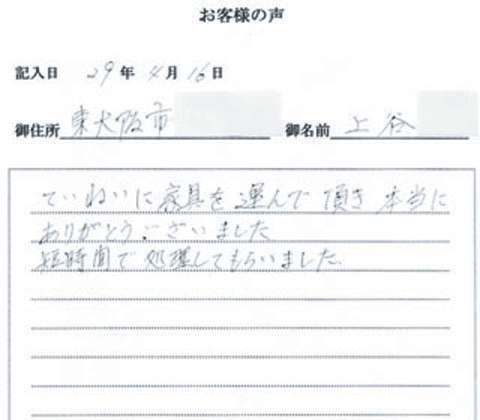 お客様の声
記入日 29年4月16日
御住所 東大阪市 御名前 上谷
ていねいに家具を運んで頂き本当に
ありがとうございました
短時間で処理してもらいました